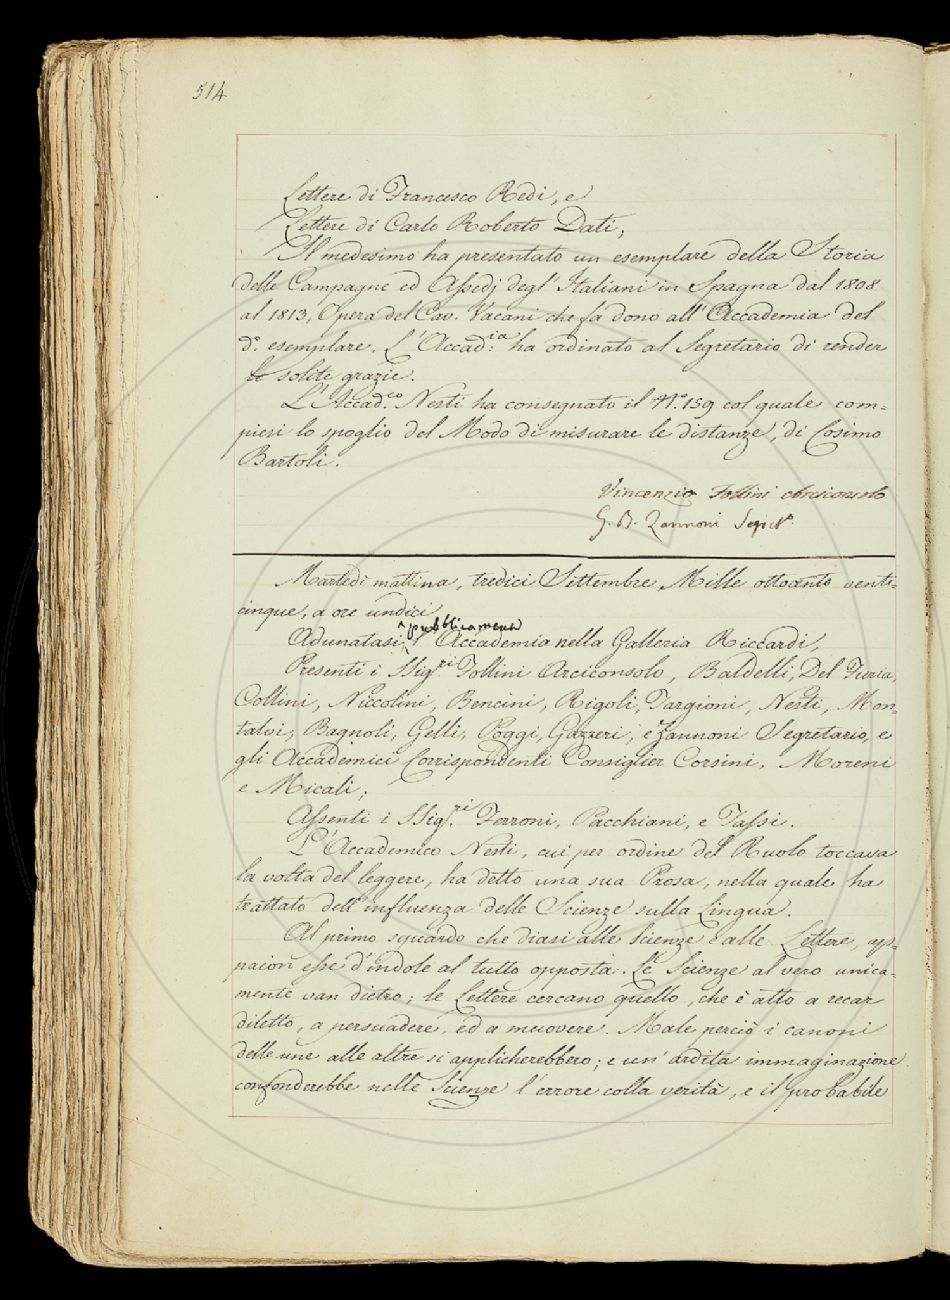 514
Lettere di Francesco Redi, e
Lettere di Carlo Roberto Dati;
Il medesimo ha presentato un esemplare della Storia
delle Campagne ed Assedj degl'Italiani in Spagna dal 1808
al 1813, Opera del Cav. Vacani che fa dono all'Accademia del
d.º esemplare. L'Accad.ia ha ordinato al Segretario di render
le solite grazie.
L'Accad.co Nesti ha consegnato il N.º 159 col quale com=
piesi lo spoglio del Modo di misurare le distanze, di Cosimo
Bartoli.
Vincenzio Follini Arciconsolo
G. B. Zannoni Segret.º
Martedì mattina, tredici Settembre Mille ottocento venti=
cinque, a ore undici
pubblicamente
Adunatasi l'Accademia nella Galleria Riccardi,
Presenti i SSig.ri Follini Arciconsolo, Baldelli, Del Furia,
Collini, Niccolini, Bencini, Rigoli, Targioni, Nesti, Mon=
talvi, Bagnoli, Gelli, Poggi, Gazzeri, e Zannoni Segretario, e
gli Accademici Corrispondenti Consiglier Corsini, Moreni
e Micali;
Assenti i SSig.ri Ferroni, Pacchiani, e Tassi.
L'Accademico Nesti, cui per ordine del Ruolo toccava
la volta del leggere, ha detto una sua Prosa, nella quale ha
trattato dell'influenza delle Scienze sulla Lingua.
Al primo sguardo che diasi alle Scienze e alle Lettere, ap=
paion esse d'indole al tutto opposta. Le Scienze al vero unica=
mente van dietro; le Lettere cercano quello, che è atto a recar
diletto, a persuadere, ed a muovere. Male perciò i canoni
delle une alle altre si applicherebbero; e un'ardita immaginazione
confonderebbe nelle Scienze l'errore colla verità, e il probabile